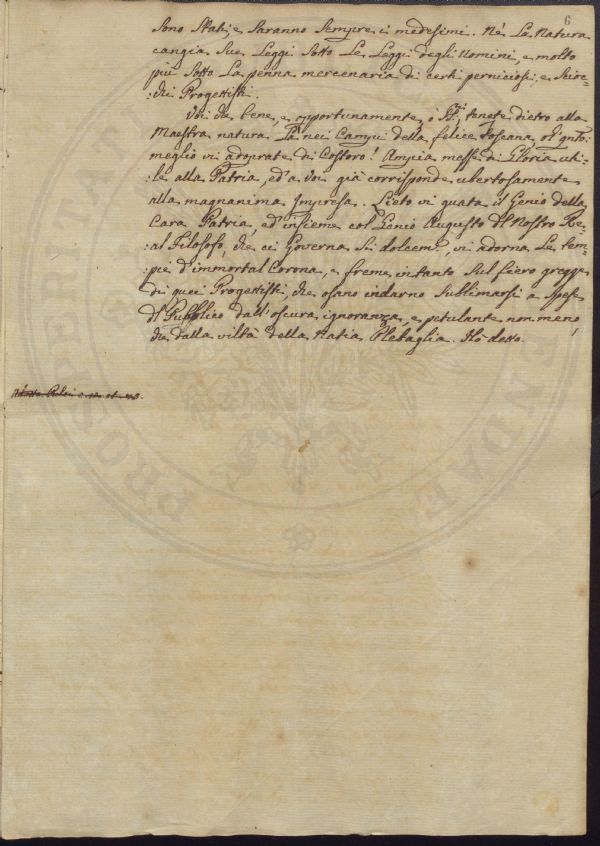 6
sono stati, e saranno sempre i medesimi. Né La Natura
cangia sue Leggi sotto Le Leggi degli Uomini, e molto
più sotto La penna mercenaria di certi perniciosi, e scioc-
:chi Progettisti.
Voi che bene, e opportunamente, ò SS.ri tenete dietro alla
Maestra natura Là nei Campi della felice Toscana, oh q.nto
meglio vi adoprate di Costoro! Ampia messe di Gloria uti-
:le alla Patria, ed'a Voi già corrisponde ubertosamente
alla magnanima Impresa. Lieto vi guata il Genio della
Cara Patria, ed'insieme col Genio Augusto del Nostro Re-
:al Filosofo, che ci Governa sì dolcem.e, vi adorna Le tem-
:pie d'immortal Corona, e freme intanto sul fiero gregge
di quei Progettisti, che osano indarno sublimarsi a spese
del Pubblico dall'oscura ignoranza, e petulante non meno,
che dalla viltà della Natia Plebaglia. Ho detto.
PROSPERITATI